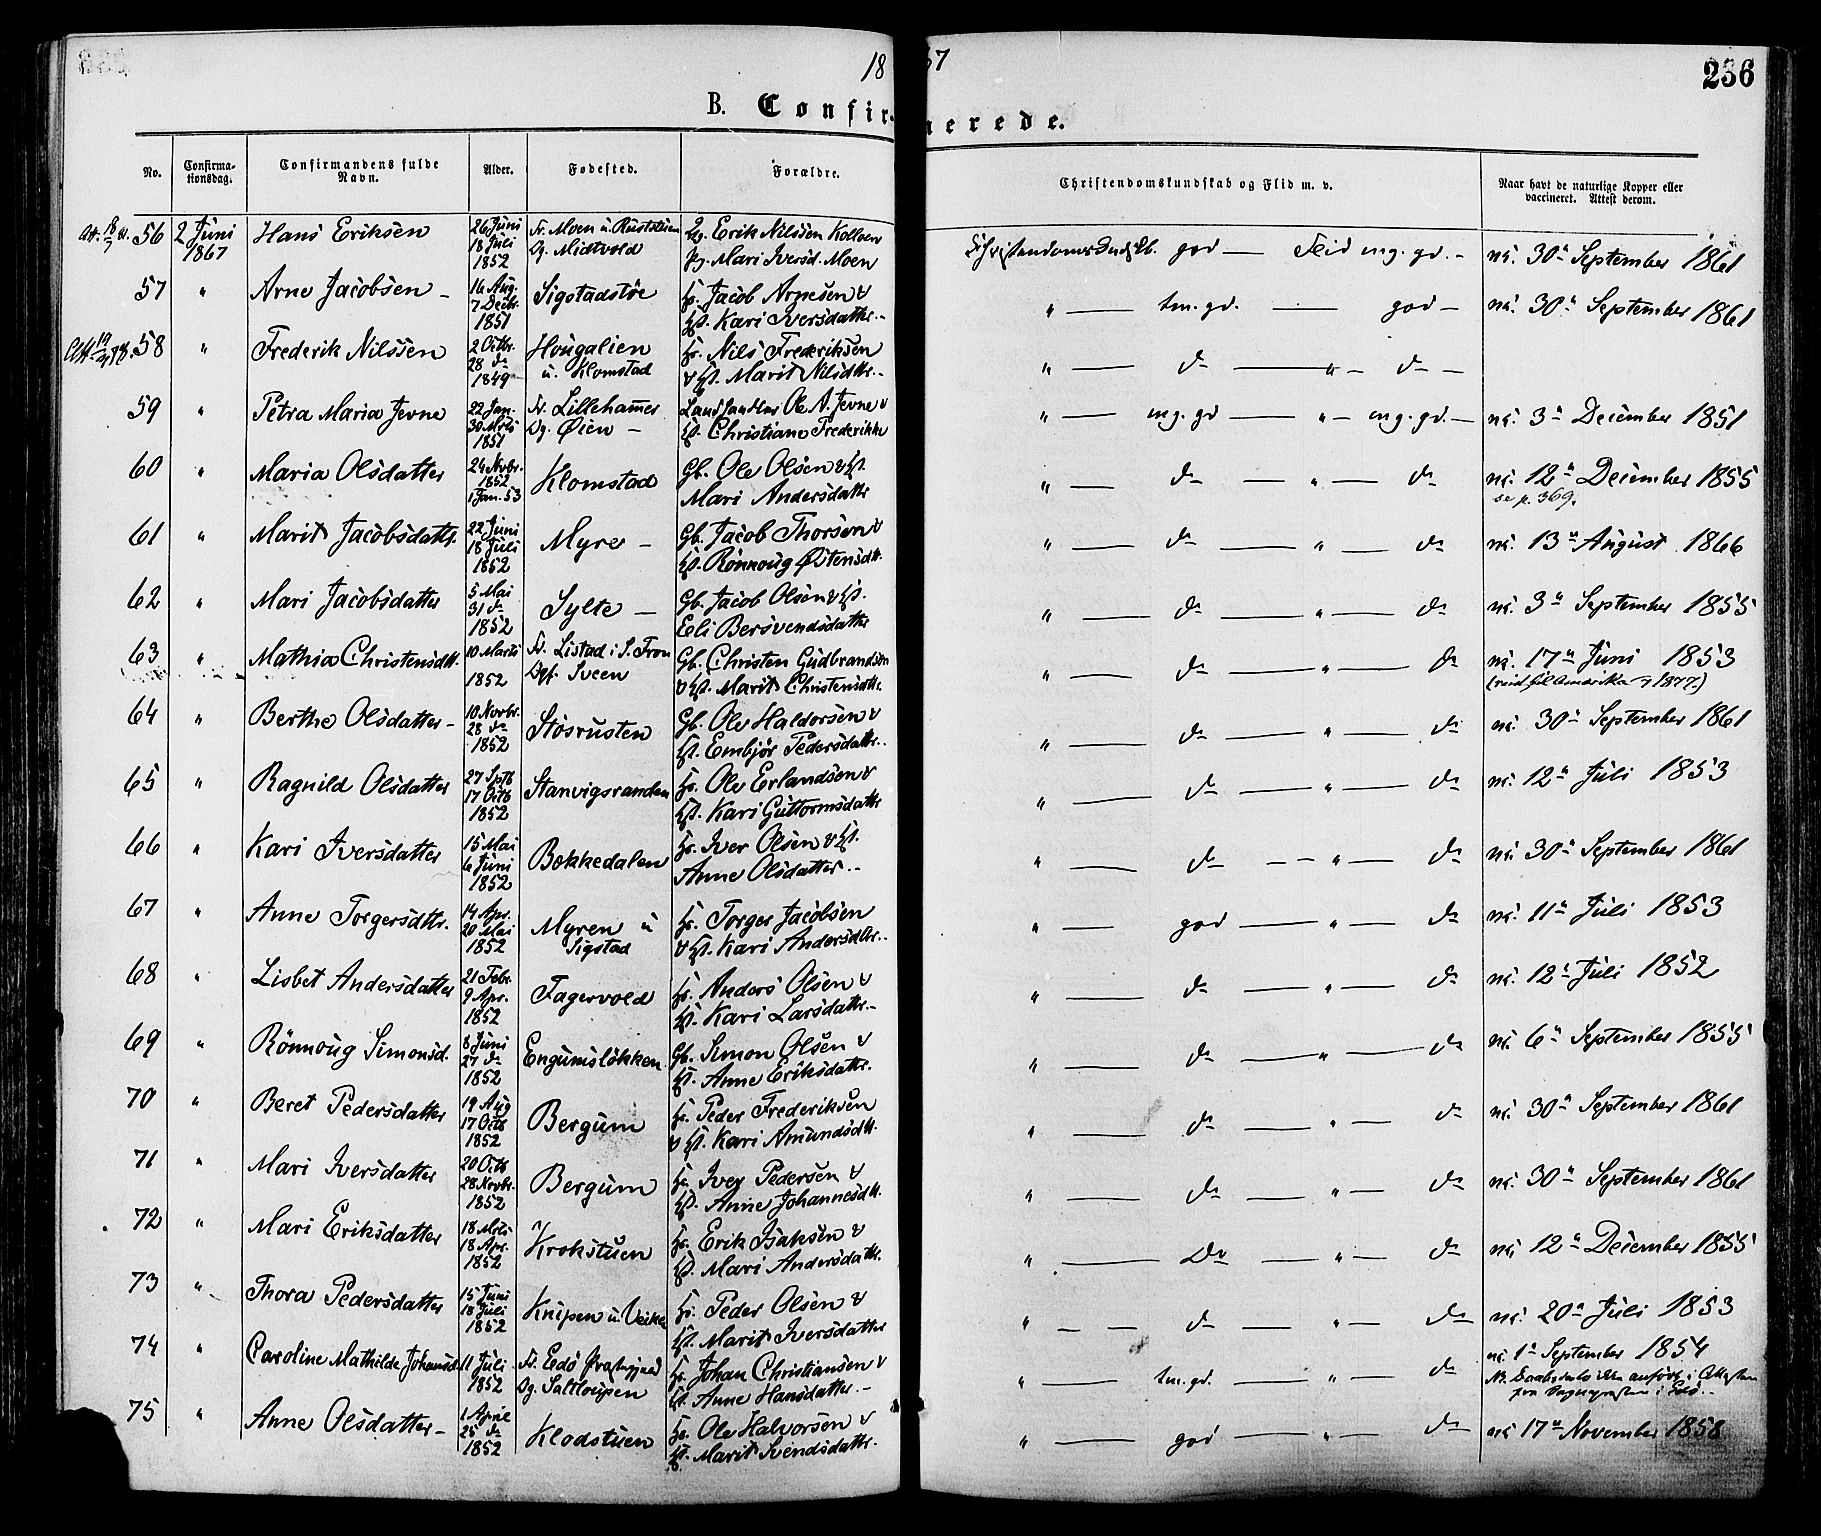 1867
236
B. Confirmerede.
No. Confirma-tionsdag. Confirmandens fulde Navn. Alder. Fødested. Forældre. Christendomskundskab og Flid m. v. Naar havt de naturlige Kopper eller vaccineret. Attest derom.
56 2 Juni 1867 Hans Eriksen 26 Juni 18 Juli 1852 Fr. Moen u. Ruststuen Dg. Midtvold Erik Nilssen Kolloen Pg. Mari Iversd. Moen Christendomskundskb. god — Flid mg. gd. — vc. 30te September 1861
57 " Arne Jacobsen — 16 Aug. 7 Decbr. 1851 Sigstadstøe Hs. Jacob Arnesen & Hst. Kari Iversdatter. " — tm. gd. — god — vc. 30te September 1861
58 " Frederik Nilssen 2 Octbr. 28 do 1849 Hougalien u. Klomstad Hs. Nils Frederiksen & Hst. Marit Nilsdtr. " — do — " — do —
59 " Petra Maria Jevne 22 Jan. 30 Mrts 1851 Fr. Lillehamer Dg. Øien — Landhandler Ole A. Jevne & Hst. Christiane Frederikke " — mg. gd — " — mg. gd. — vc. 3de December 1851
60 " Maria Olsdatter 24 Novbr. 1852 1 Jan. 53 Klomstad Gb. Ole Olsen & Hst. Mari Andersdatter " — do — " — do vc. 12te December 1855 se p. 369.
61 " Marit Jacobsdattr. 22 Juni 18 Juli 1852 Myre — Gb. Jacob Thorsen & Hst. Rönnoug Østensdtr. " — do — " — do vc. 13te August 1866
62 " Mari Jacobsdatter 5 Mai 31 do 1852 Sylte — Gb. Jacob Olsen & Hst. Eli Bersvendsdatter " — do — " — do vc. 3de September 1855
63 " Mathia Christensdtr. 10 Marts 1852 Fr. Listad i S. Fron Dgf. Sveen Gb. Christen Gudbrandsen & Hst. Marit Christensdtr. " — do — " — do vc. 17de Juni 1853 (reist til Amerika 1877.)
64 " Berthe Olsdatter — 10 Novbr. 28 do 1852 Stosrusten Gb. Ole Haldorsen & Hst. Embjør Pedersdattr. " — do — " — do vc. 30te September 1861
65 " Ragnild Olsdatter 27 Sptb 17 Octb 1852 Stanvigsranden Hs. Ole Erlandsen & Hst. Kari Guttormsdatter " — do — " — do vc. 12te Juli 1853
66 " Kari Iversdatter 15 Mai 6 Juni 1852 Bokkedalen Hs. Iver Olsen & Hst. Anne Olsdatter. " — do — " — do vc. 30te September 1861
67 " Anne Torgersdttr. 14 Apr. 20 Mai 1852 Myren u Sigstad Hs. Torger Jacobsen & Hst. Kari Andersdtr. " — god — " — do vc. 11te Juli 1853
68 " Lisbet Andersdatter 21 Febr. 9 Apr. 1852 Fagervold Hs. Anders Olsen & Hst. Kari Larsdatter. " — do — " — do vc. 12te Juli 1852
69 " Rönnoug Simonsd. 8 Juni 27 do 1852 Engumsløkken Gb. Simon Olsen & Hst. Anne Eriksdattr. " — do — " — do vc. 6te September 1855
70 " Beret Pedersdatter 19 Aug 17 Octb 1852 Bergum Hs. Peder Frederiksen & Hst. Kari Amundsdtr. " — do — " — do vc. 30te September 1861
71 " Mari Iversdatter 20 Octb 28 Novbr. 1852 Bergum Hs. Iver Pedersen & Hst. Anne Johannesdtr. " — do — " — do vc. 30te September 1861
72 " Mari Eriksdatter 18 Mrts 18 Apr. 1852 Krokstuen Hs. Erik Isaksen & Hst. Mari Andersdattr. " — do — " — do vc. 12te December 1855
73 " Thora Pedersdatter 15 Juni 18 Juli 1852 Knipen u. Veikle Hs. Peder Olsen & Hst. Marit Iversdatter " — do — " — do vc. 20de Juli 1853
74 " Caroline Mathilde Johansd. 11 Juli 1852 Fr. Edø Præstegjæld Dg. Saltloupen Hs. Johan Christiansen & Hst. Anne Hansdatter. " — tm. gd. — " — do vc. 1ste September 1854
75 " Anne Olsdatter — 1 April 25 do 1852 Klodstuen Hs. Ole Halvorsen & Hst. Marit Svendsdattr. " — god — " — do vc 17de November 1858